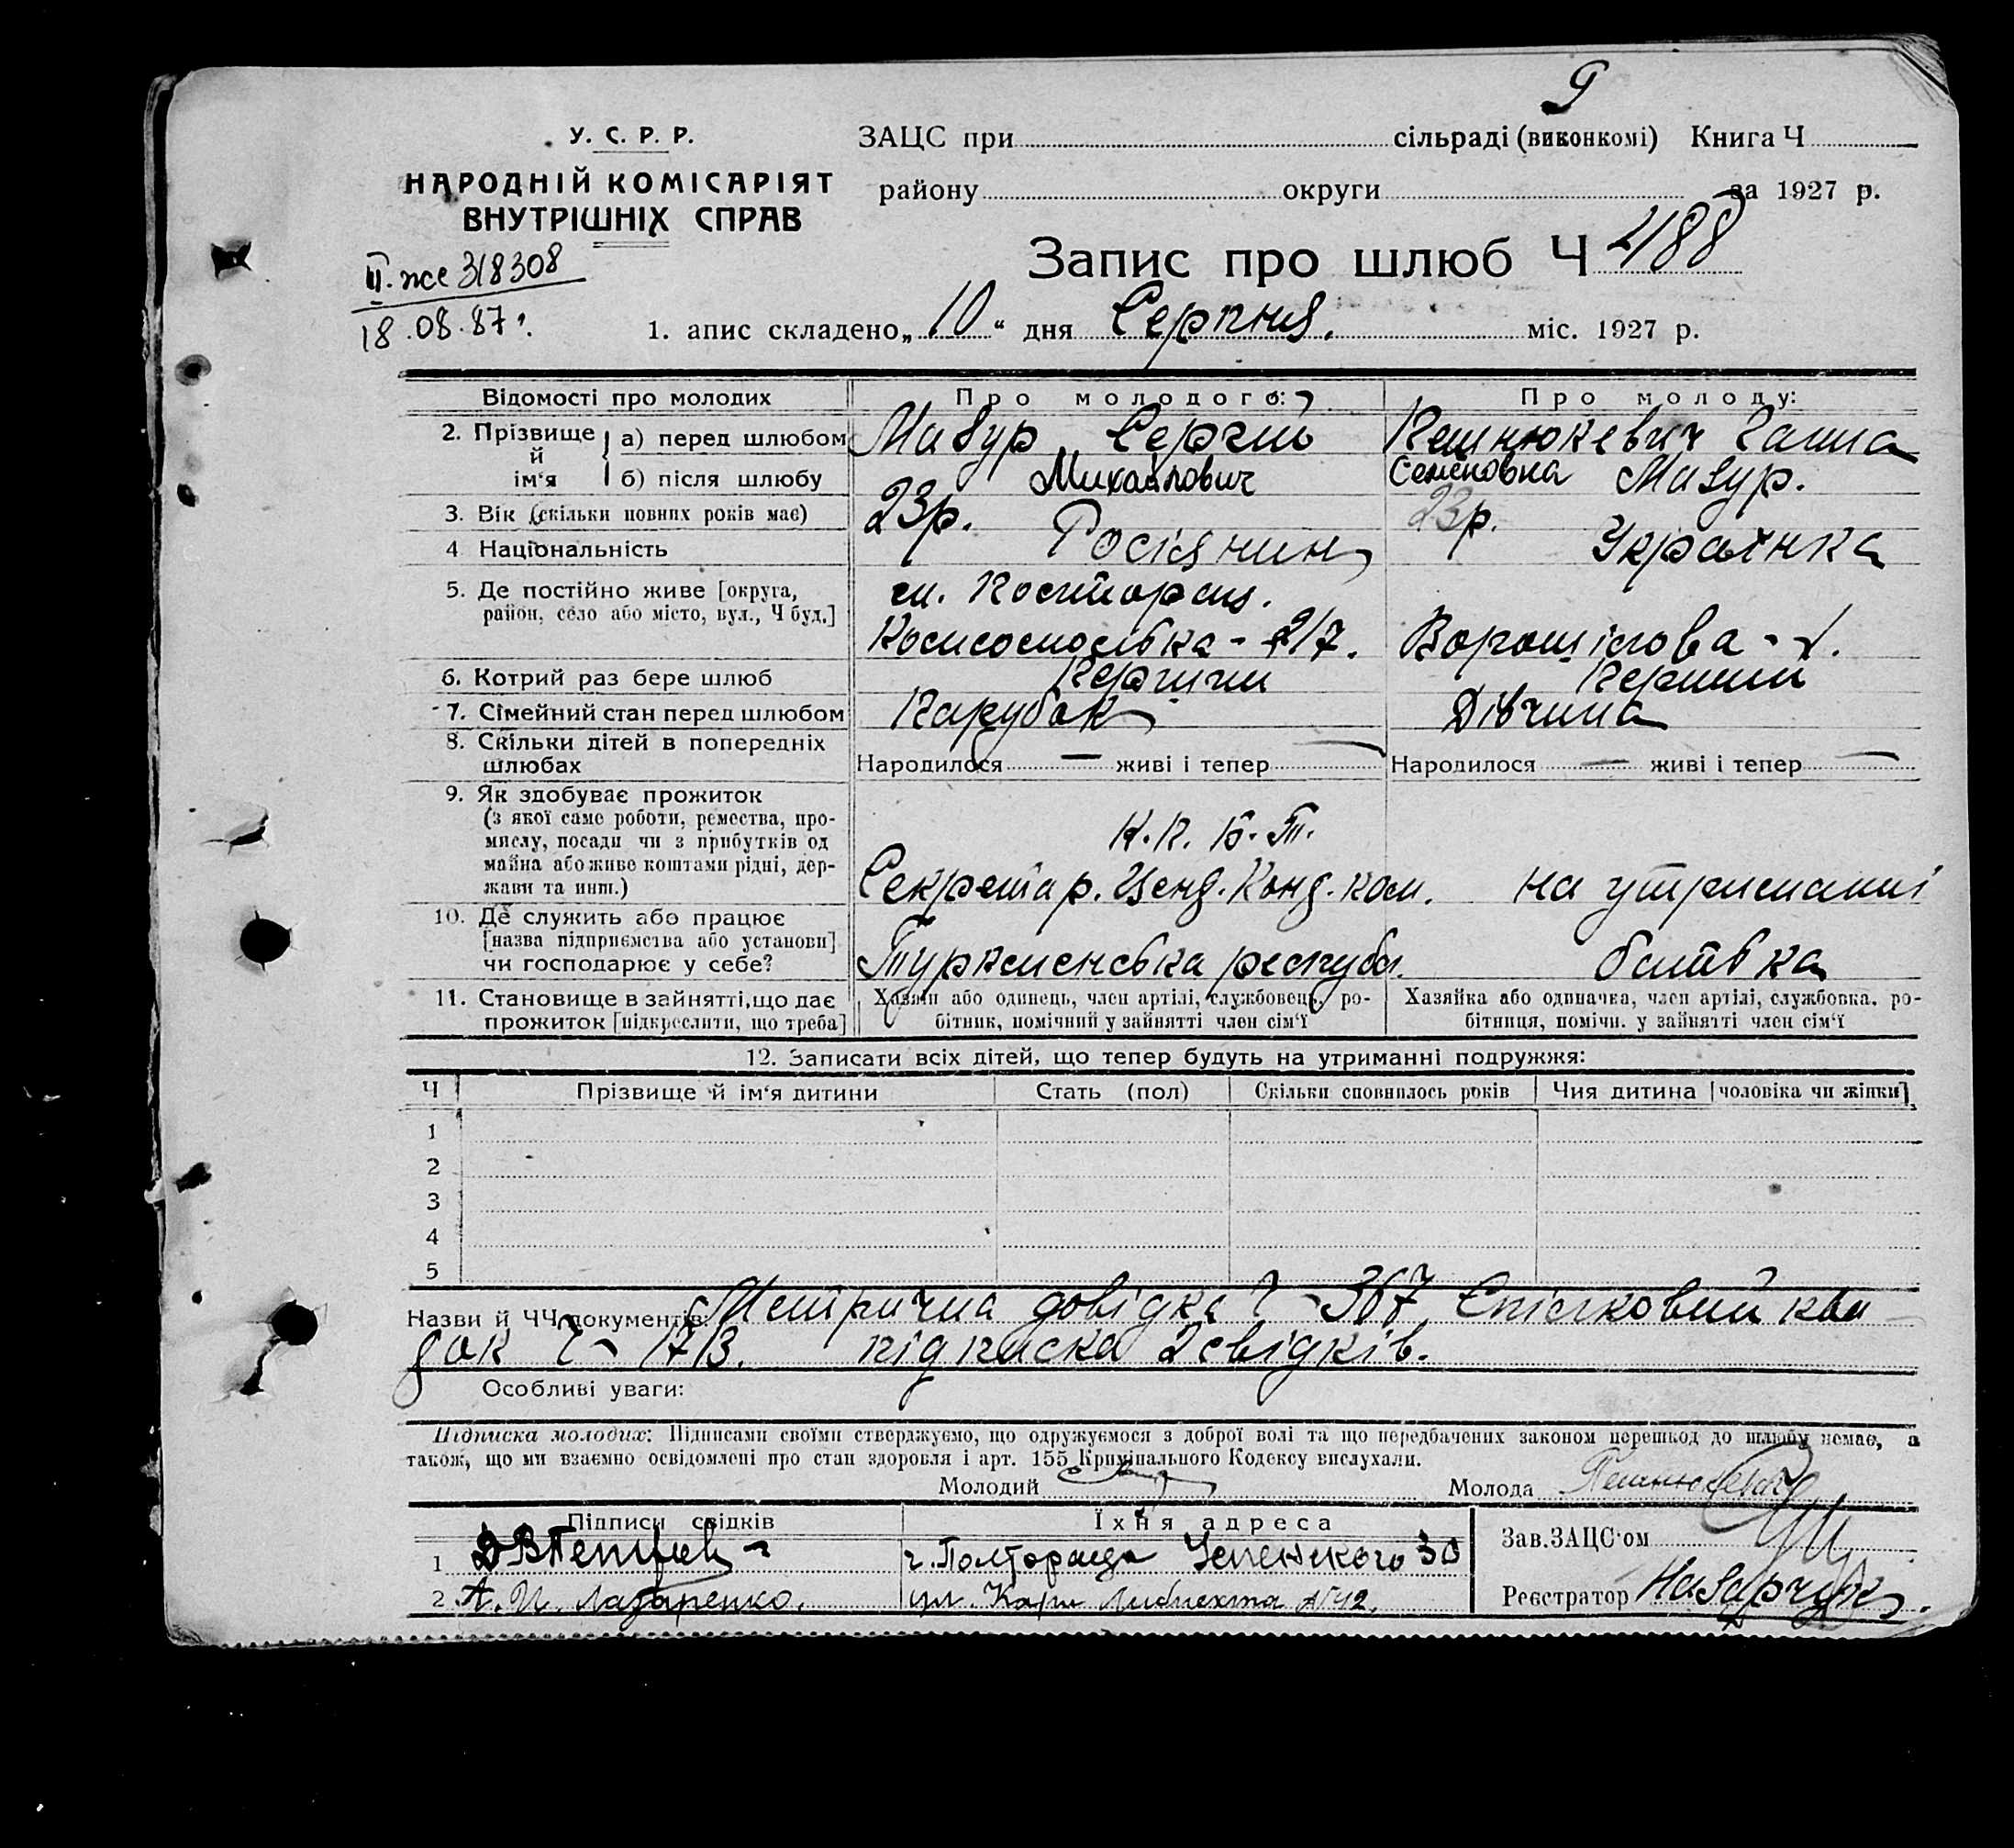 9
У. С. Р. Р.
НАРОДНІЙ КОМІСАРІЯТ
ВНУТРІШНІХ СПРАВ
II. же 318308
18.08.87г.
ЗАЦС при сільраді (виконкомі) Книга Ч
району округи за 1927 р.
Запис про шлюб Ч 488
1. апис складено „10“ дня Серпня. міс. 1927 р.
Відомості про молодих Про молодого: Про молоду:
2. Прізвище й ім‘я а) перед шлюбом Мазур Сергій Пешнюкевич Ганна
б) після шлюбу Михайлович Семеновна Мазур.
3. Вік (скільки повних років має) 23р. 23р.
4. Національність Росіянин Українка
5. Де постійно живе [округа, район, село або місто, вул., Ч буд.] м. Полторацк.
Комсомольська - 217. Ворошілова -
6. Котрий раз бере шлюб Перший Перший
7. Сімейний стан перед шлюбом Парубок Дівчина
8. Скільки дітей в попередніх шлюбах Народилося — живі і тепер — Народилося — живі і тепер —
9. Як здобуває прожиток
(з якої саме роботи, ремества, про-
мислу, посади чи з прибутків од
майна або живе коштами рідні, дер-
жави та инш.)
К.П.
Секретар. ком. на утриманні
10. Де служить або працює
[назва підприємства або установи]
чи господарює у себе?
Туркменська республ. батька
11. Становище в зайнятті, що дає
прожиток [підкреслити, що треба]
Хазяїн або одинець, член артілі, службовець, ро-
бітник, помічний у зайнятті член сім‘ї
Хазяйка або одиначка, член артілі, службовка, ро-
бітниця, помічн. у зайнятті член сім‘ї
12. Записати всіх дітей, що тепер будуть на утриманні подружжя:
Ч Прізвище й ім‘я дитини Стать (пол) Скільки сповнилось років Чия дитина [чоловіка чи жінки]
1
2
3
4
5
Назви й ЧЧ документів: Метрична довідка Ч- 367 Спілковий кви
док Ч- 1713. підписка 2 свідків.
Особливі уваги:
Підписка молодих: Підписами своїми стверджуємо, що одружуємося з доброї волі та що передбачених законом перешкод до шлюбу немає, а
також, що ми взаємно освідомлені про стан здоровля і арт. 155 Кримінального Кодексу вислухали.
Молодий Молода Пешнюкевич
Підписи свідків Їхня адреса
1 г. Полторацк Успенского 30
2 А. И. Лазаренко. ул. Карл Либкнехта №42.
Зав. ЗАЦС‘ом
Реєстратор Назарчук